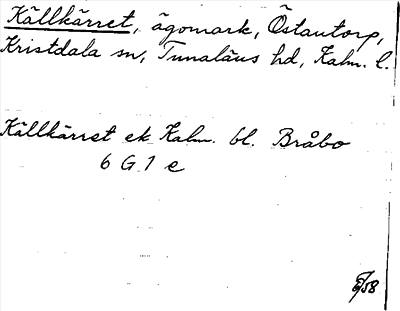 Källkärret, ägomark, Östantorp,
Kristdala sn, Tunaläns hd, Kalm. l.
Källkärret ek Kalm. bl. Bråbo
6 G 1 e
/58